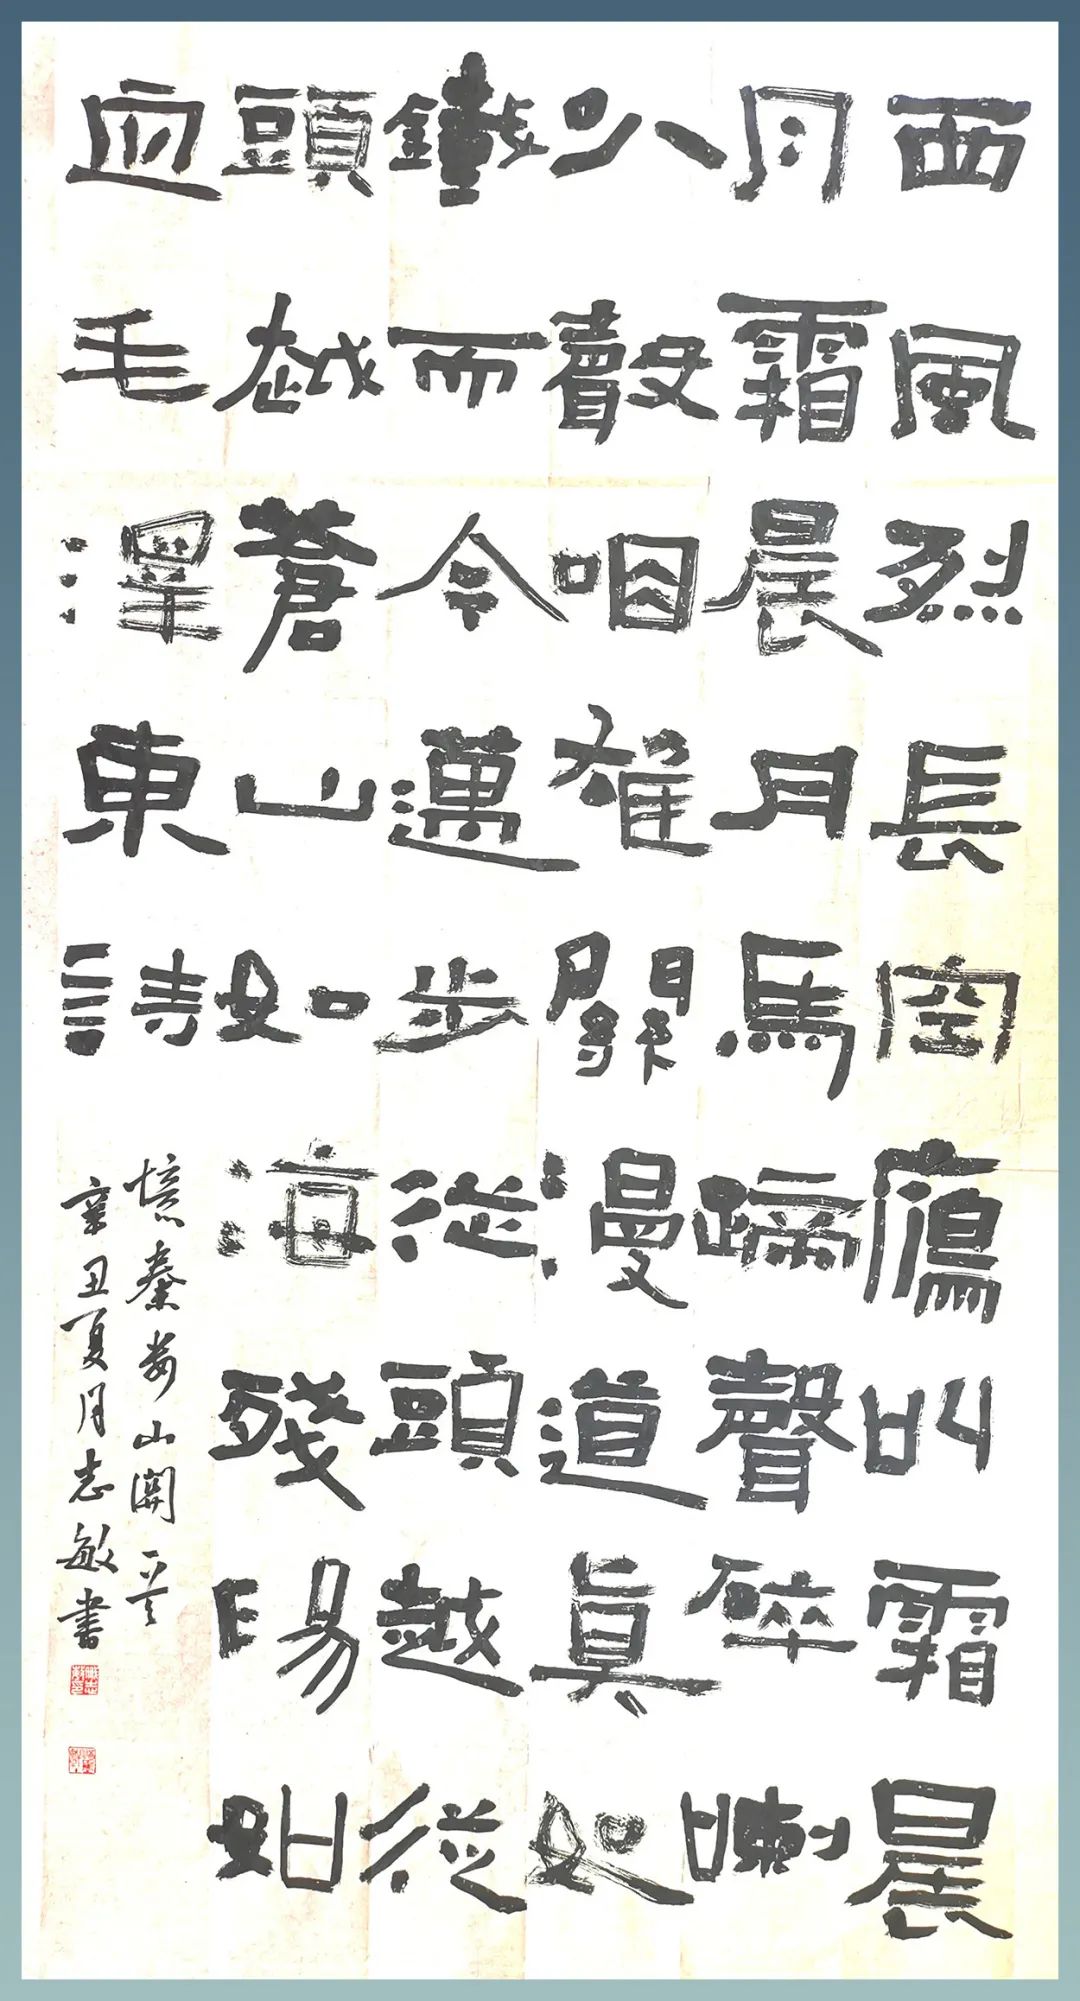 西風烈長空鴈叫霜晨
月霜晨月馬蹄聲碎喇
叭聲咽雄關漫道眞如
鐵而今邁步從頭越從
頭越蒼山如海殘陽如
血毛澤東詩
憶秦娄山関一首
辛丑夏月志敏書